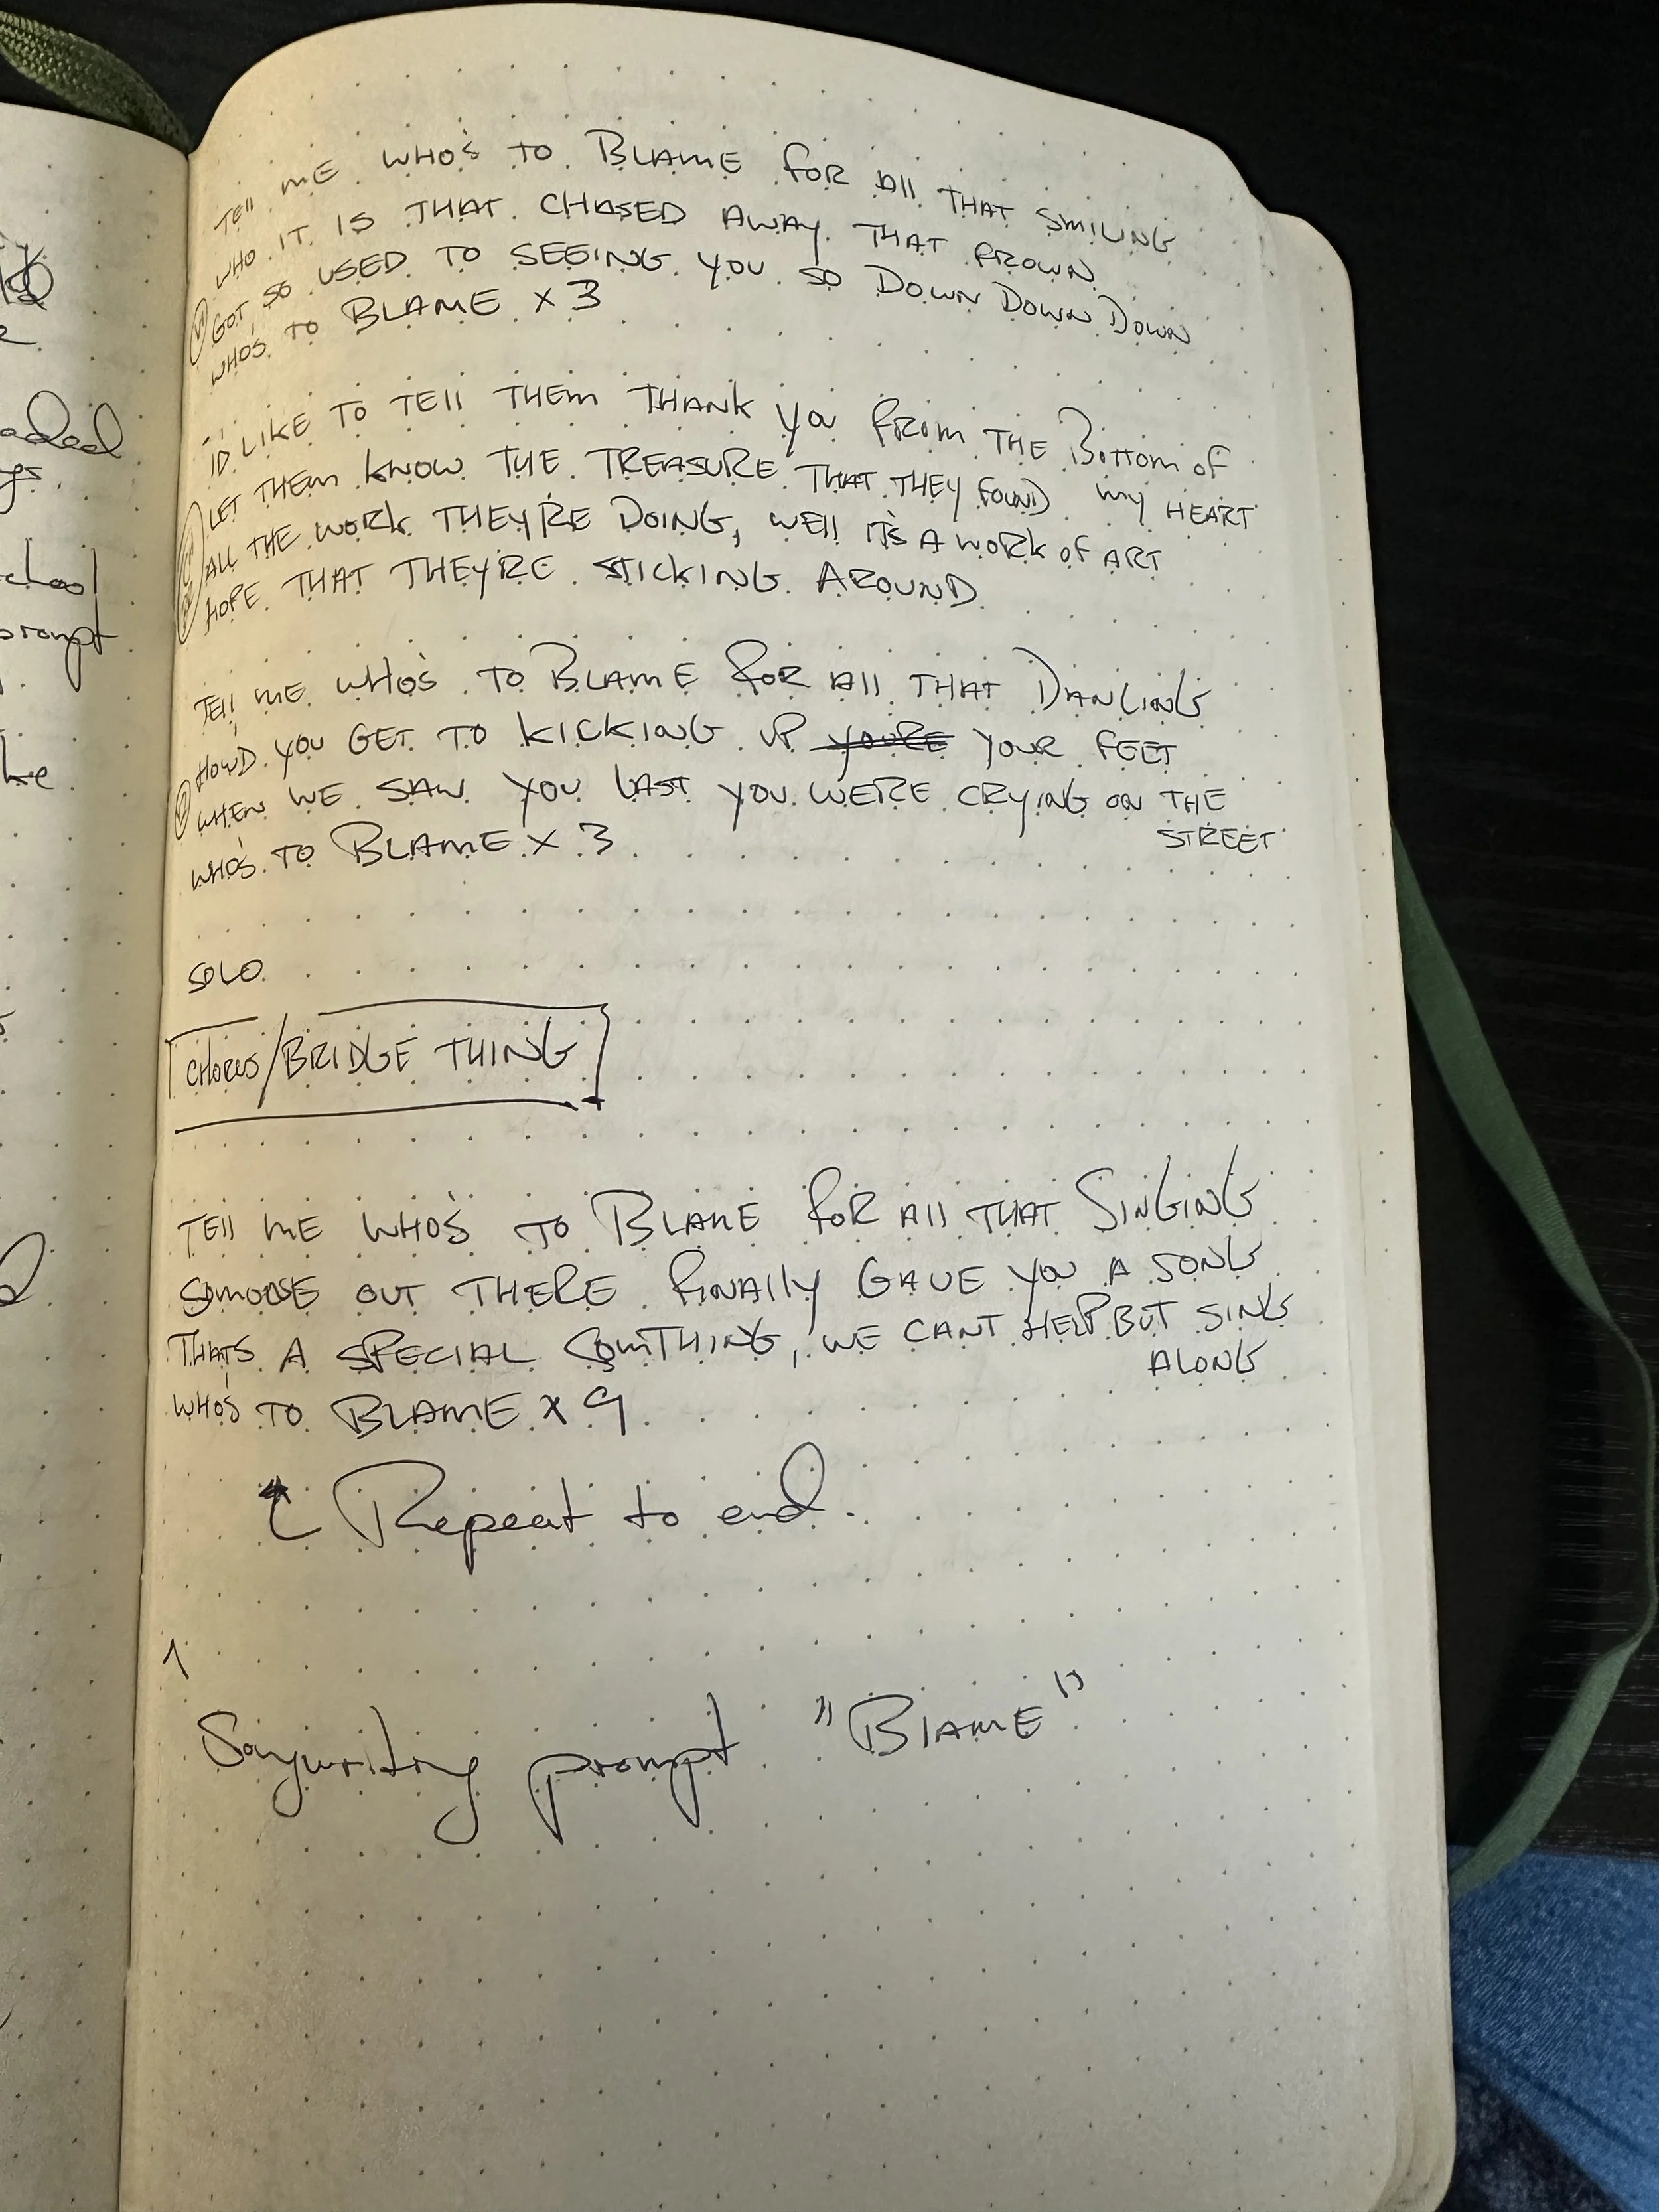 TEll ME WHO'S TO BLAME FOR All THAT SMILING
WHO IT IS THAT CHASED AWAY THAT FROWN
GOT SO USED TO SEEING YOU SO DOWN DOWN DOWN
WHO'S TO BLAME x 3
I'D LIKE TO TEll THEM THANK YOU FROM THE BOTTOM OF
MY HEART
LET THEM KNOW THE TREASURE THAT THEY FOUND
ALL THE WORK THEY'RE DOING, WEll IT'S A WORK OF ART
HOPE THAT THEY'RE STICKING AROUND
TEll ME WHO'S TO BLAME FOR All THAT DANCING
HOW'D YOU GET TO KICKING UP YOU'RE YOUR FEET
WHEN WE SAW YOU LAST YOU WERE CRYING ON THE
STREET
WHO'S TO BLAME x 3
SOLO
CHORUS/BRIDGE THING
TEll ME WHO'S TO BLAME FOR All THAT SINGING
OUT THERE FINALLY GAVE YOU A SONG
THATS A SPECIAL SOMTHING, WE CANT HELP BUT SING
ALONG
WHO'S TO BLAME x 9
Repeat to end.
Songwriting prompt "BlAME"
adeed
chool
prompt